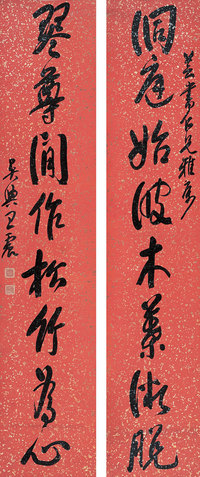 仁兄雅屬
洞庭始波木葉微脫
琴尊間作松竹為心
吳興王震